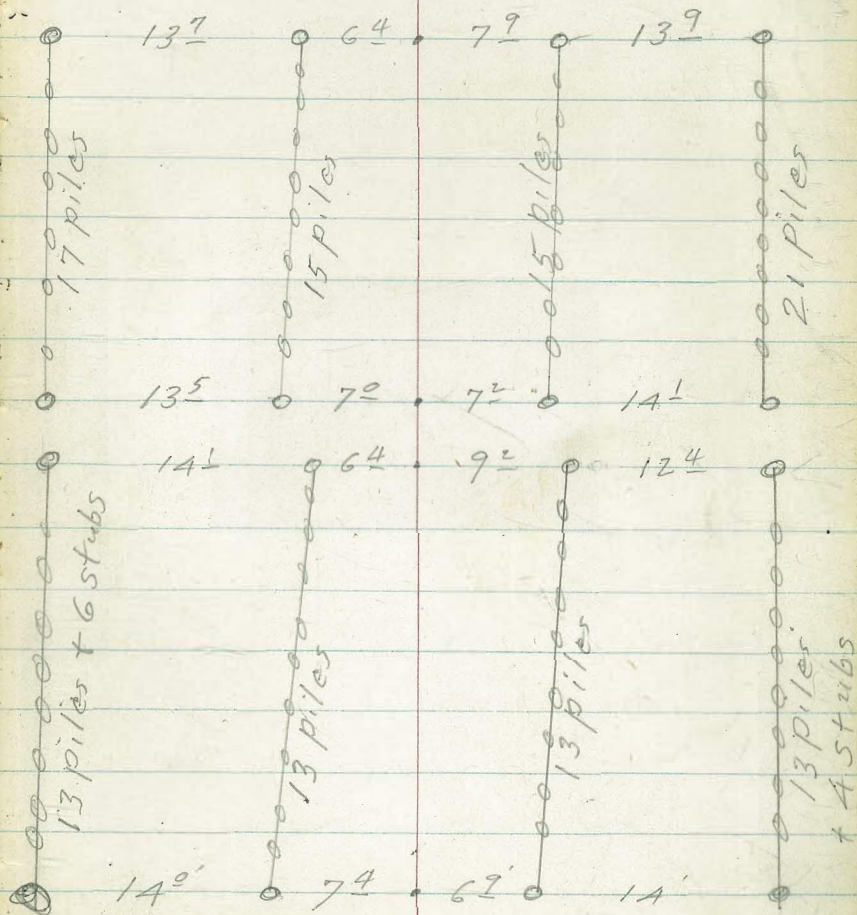 13 7 6 4 7 9 13 9
17 piles 15 piles 15 piles 21 piles
13 5 7 0 7 2 14 1
14 1 6 4 9 2 12 4
13 piles + 6 stubs 13 piles 13 piles 13 piles
+ 4 stubs
14 0' 7 4 6 9' 14'